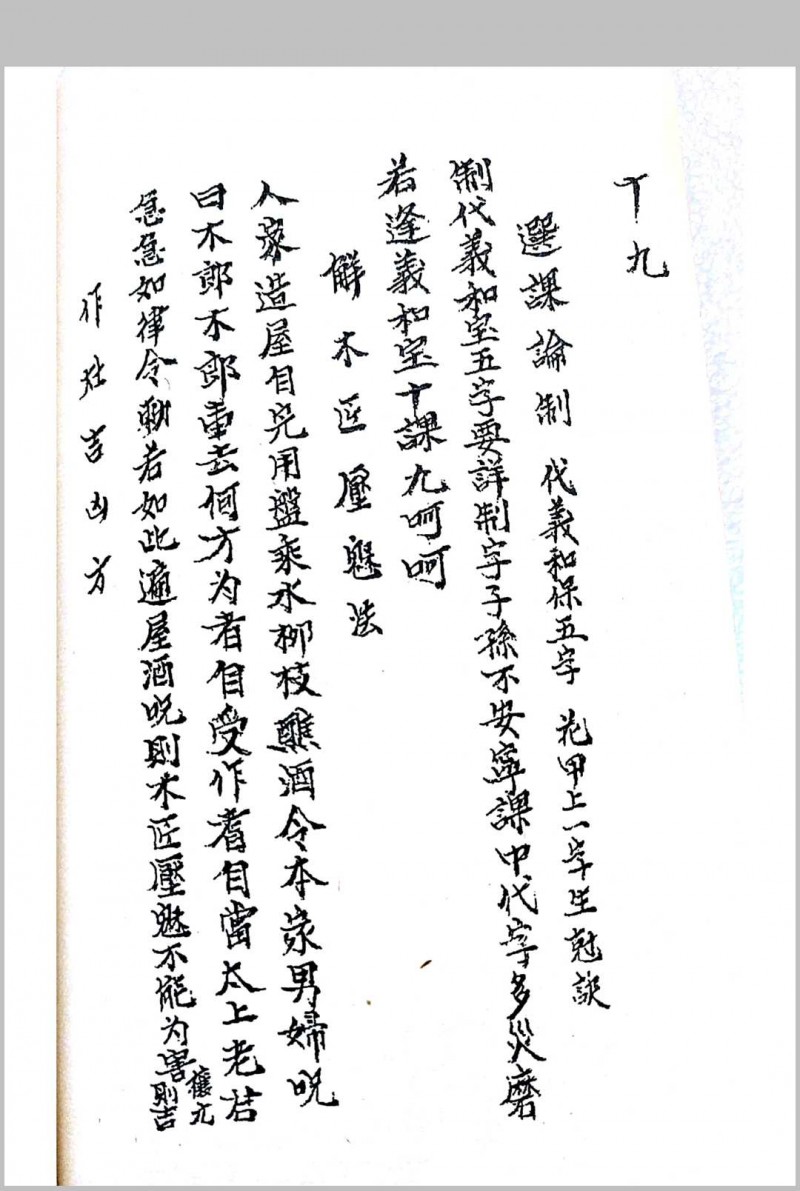 丅九
選課論制 代義和保五字 花甲上一字生尅訣
制代義和宝五字要詳制字子孫不安寧課中代字多災磨
若逢義和宝十課九呵呵
觧木匠壓魅法
人家造屋目完用盤乘水柳枝醮洒令本家男婦咒
曰木郎木郎重去何方为者自受作者自當太上老君
急急如律令勅若如此遍屋洒咒則木匠壓魅不能为害則吉
作灶吉凶方